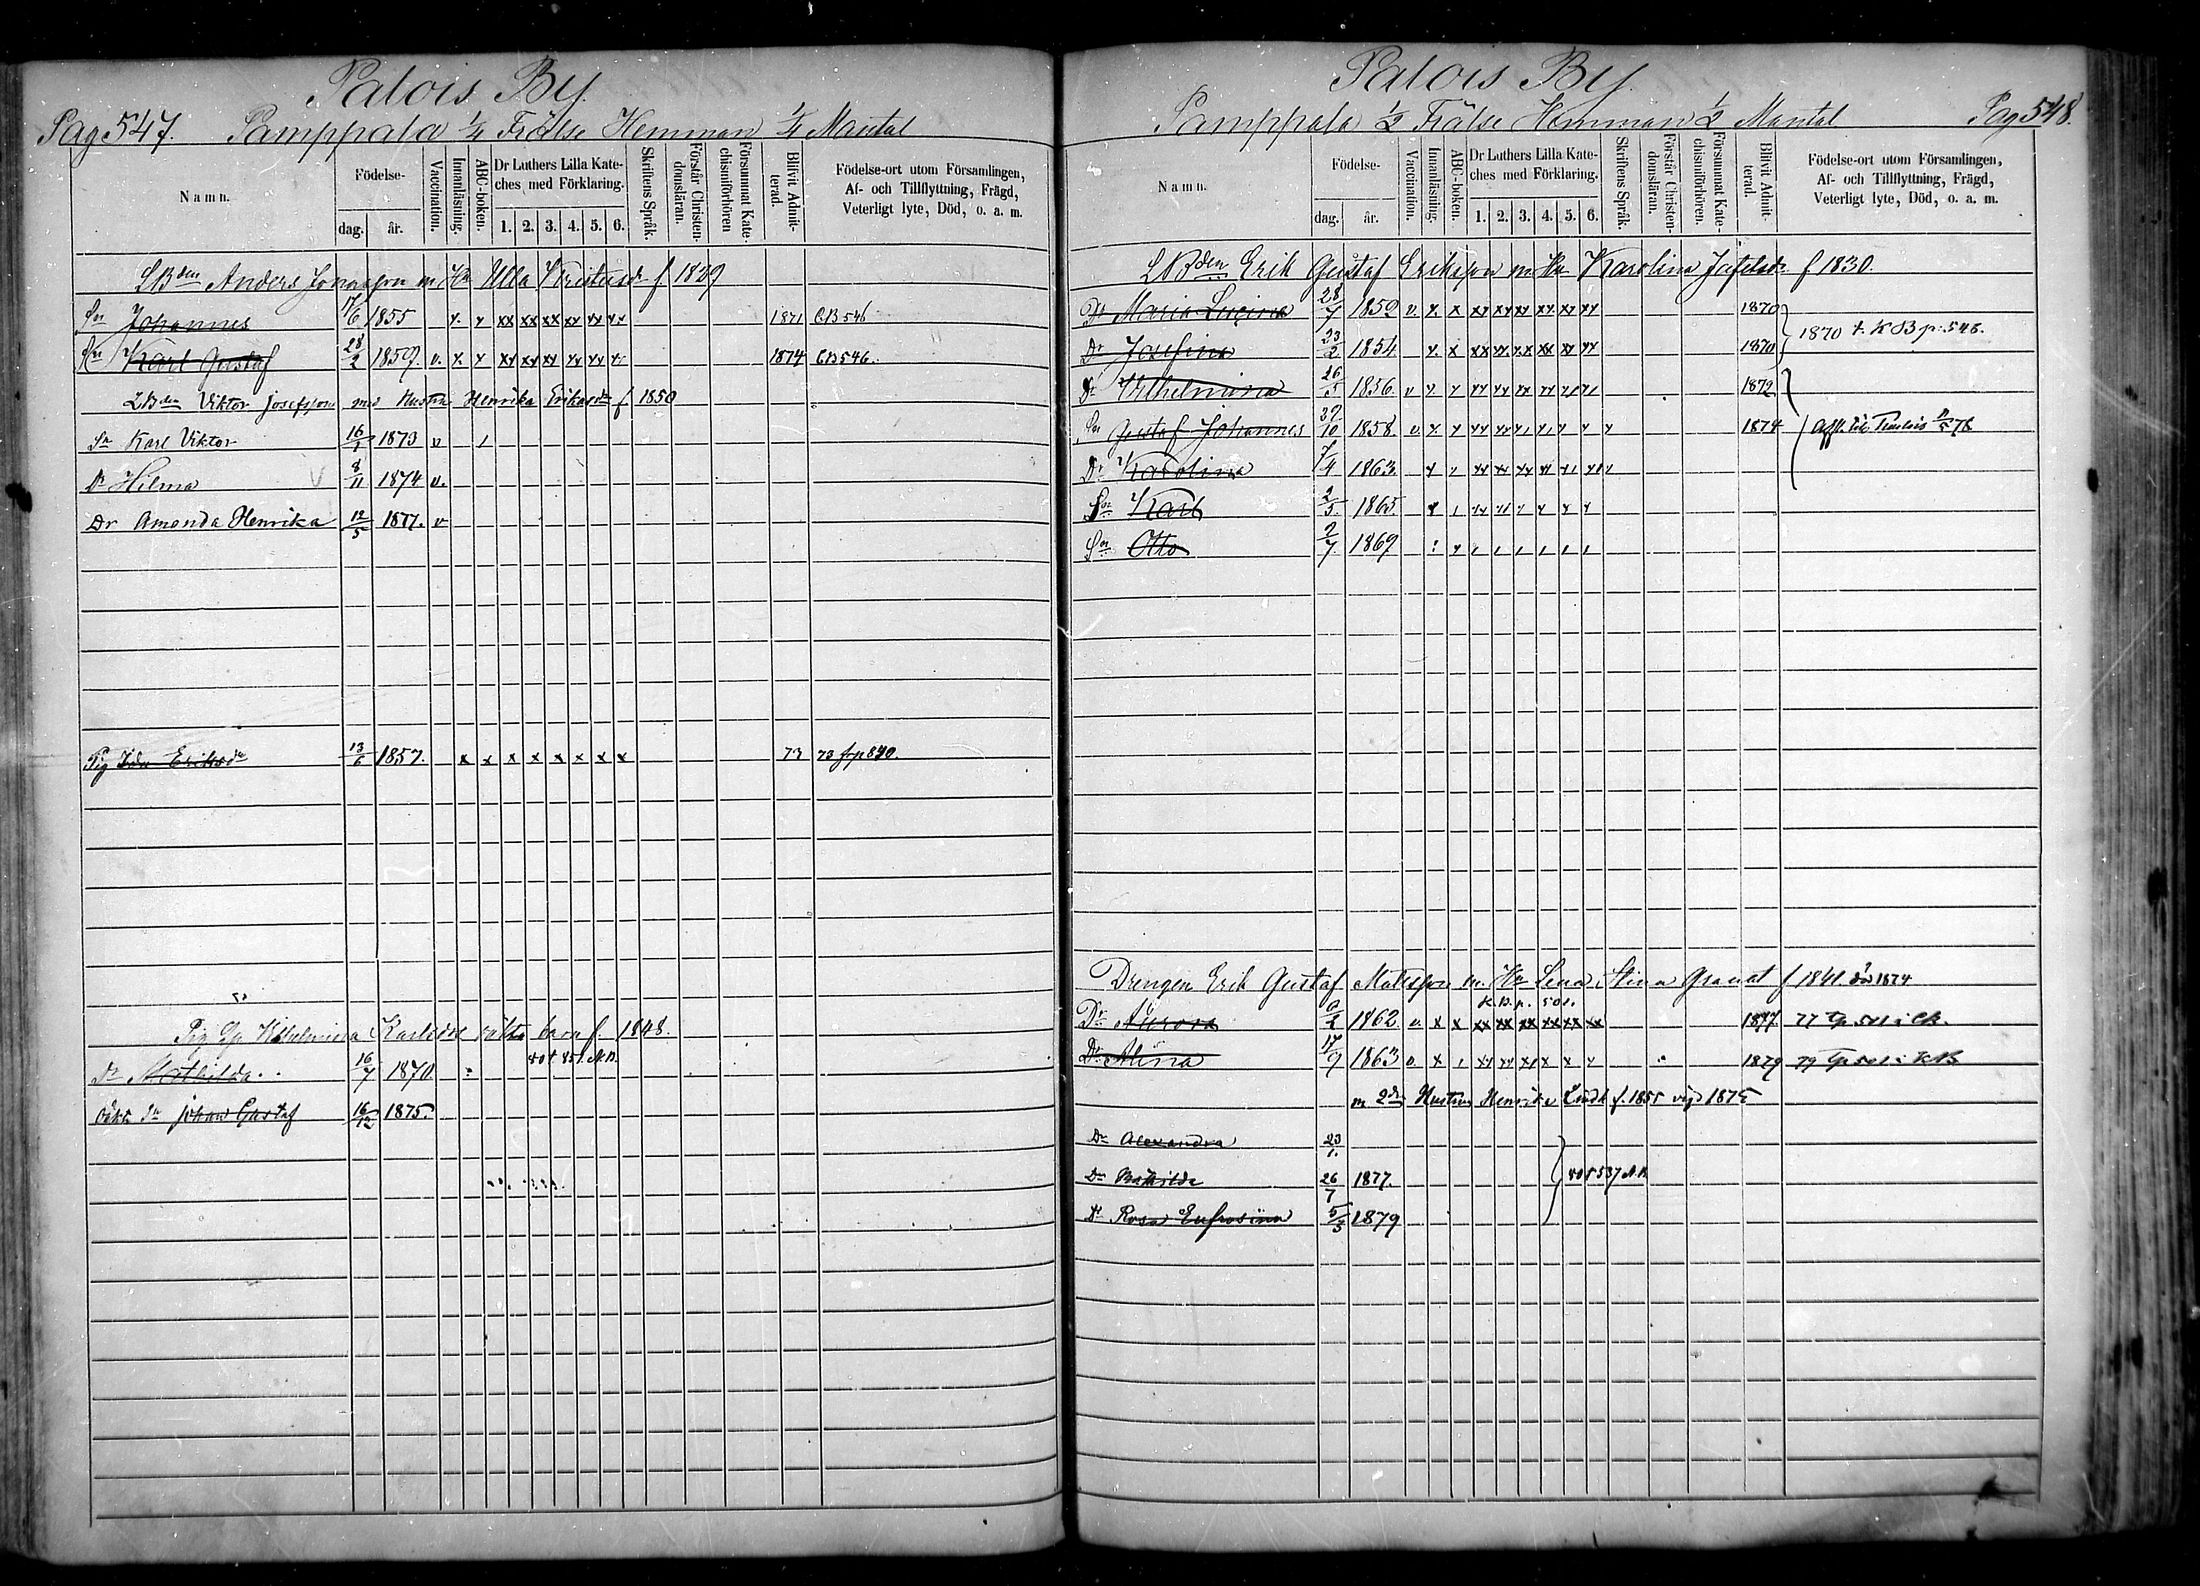 Palois By.
Pag 547. Pamppala 1/4 Frälse Hemman 1/4 Mantal
Namn.
Födelse-
dag. år.
Vaccination.
Innanläsning.
ABC-boken.
Dr Luthers Lilla Kate-
ches med Förklaring.
1. 2. 3. 4. 5. 6.
Skriftens Språk.
Förstår Christen-
domsläran.
Försummat Kate-
chismiförhören
Blifvit Admit-
terad.
Födelse-ort utom Församlingen,
Af- och Tillflyttning, Frägd,
Veterligt lyte, Död, o. a. m.
LBden Anders Jonasson m Hu Ulla Kristinsdr f 1829
Sn Johannes 17/6 1855 x. x xx xx xx xx xx xx 1871 CB 546
Sn Karl Gustaf 28/2 1859. v. x. x xx xx xx xx xx xx 1874 CB 546.
LBden Viktor Josefsson med Hustru Henrika Eriksdr f 1850
Sn Karl Viktor 16/1 1873 v
Dr Hilma 8/11 1874 v.
Dr Amanda Henrika 12/5 1877. v
Pig Ida Eriksdr 13/6 1857. x x x x x x x x 73 73 frp 840.
Pig Wilhelmina Karlsdrs oäkta barn f. 1848.
Dr Mathilda 16/7 1870
Oäkta Sn Johan Gustaf 16/12 1875.
Palois By.
Pamppala 1/2 Frälse Hemman 1/2 Mantal Pag 548.
Namn.
Födelse-
dag. år.
Vaccination.
Innanläsning.
ABC-boken.
Dr Luthers Lilla Kate-
ches med Förklaring.
1. 2. 3. 4. 5. 6.
Skriftens Språk.
Förstår Christen-
domsläran.
Försummat Kate-
chismiförhören.
Blifvit Admit-
terad.
Födelse-ort utom Församlingen,
Af- och Tillflyttning, Frägd,
Veterligt lyte, Död, o. a. m.
LBden Erik Gustaf Eriksson m Hu Karolina f 1830.
Dr Maria 28/7 1850 v. x. x xx xx xx xx xx xx 1870
1870 t. KB p. 548.
Dr Josefina 23/2 1854 x. x xx xx. x.x xx xx xx 1870
Dr Vilhelmina 26/5 1856. v x. x xx xx xx xx xx xx 1872
Sn Gustaf Johannes 29/10 1858. v. x x 1874 Afft. till 78
Dr Karolina 7/4 1863
Sn Karl 2/5. 1865
Sn Otto 2/7. 1869
Drengen Erik Gustaf Matsson m. Hu Lena Stina Granat f 1841. död 1874
K.B. p. 501.
Dr Aurora 9/2 1862 v. x x xx xx xx xx xx xx 1877 77
Dr Alina 17/9 1863 v. x 1879 79
m 2dra Hustru Henrika Lindh f. 1855 vigd 1875
Dr Alexandra 23/1.
Dr Mathilda 26/7 1877.
Dr Rosa Eufrosina 5/3 1879